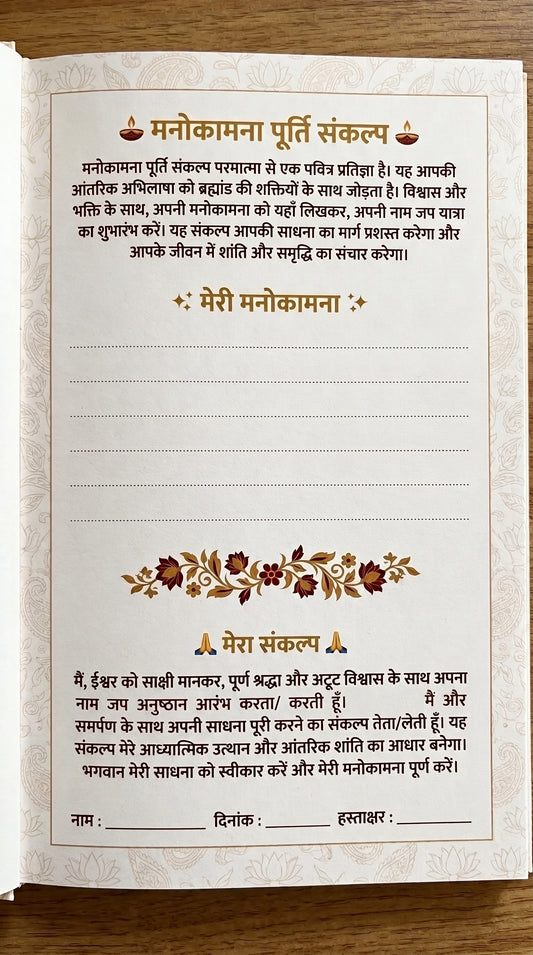 मनोकामना पूर्ति संकल्प
मनोकामना पूर्ति संकल्प परमात्मा से एक पवित्र प्रतिज्ञा है। यह आपकी
आंतरिक अभिलाषा को ब्रह्मांड की शक्तियों के साथ जोड़ता है। विश्वास और
भक्ति के साथ, अपनी मनोकामना को यहाँ लिखकर, अपनी नाम जप यात्रा
का शुभारंभ करें। यह संकल्प आपकी साधना का मार्ग प्रशस्त करेगा और
आपके जीवन में शांति और समृद्धि का संचार करेगा।
मेरी मनोकामना
मेरा संकल्प
मैं, ईश्वर को साक्षी मानकर, पूर्ण श्रद्धा और अटूट विश्वास के साथ अपना
नाम जप अनुष्ठान आरंभ करता/ करती हूँ। मैं और
समर्पण के साथ अपनी साधना पूरी करने का संकल्प तेता/लेती हूँ। यह
संकल्प मेरे आध्यात्मिक उत्थान और आंतरिक शांति का आधार बनेगा।
भगवान मेरी साधना को स्वीकार करें और मेरी मनोकामना पूर्ण करें।
नाम : दिनांक : हस्ताक्षर :